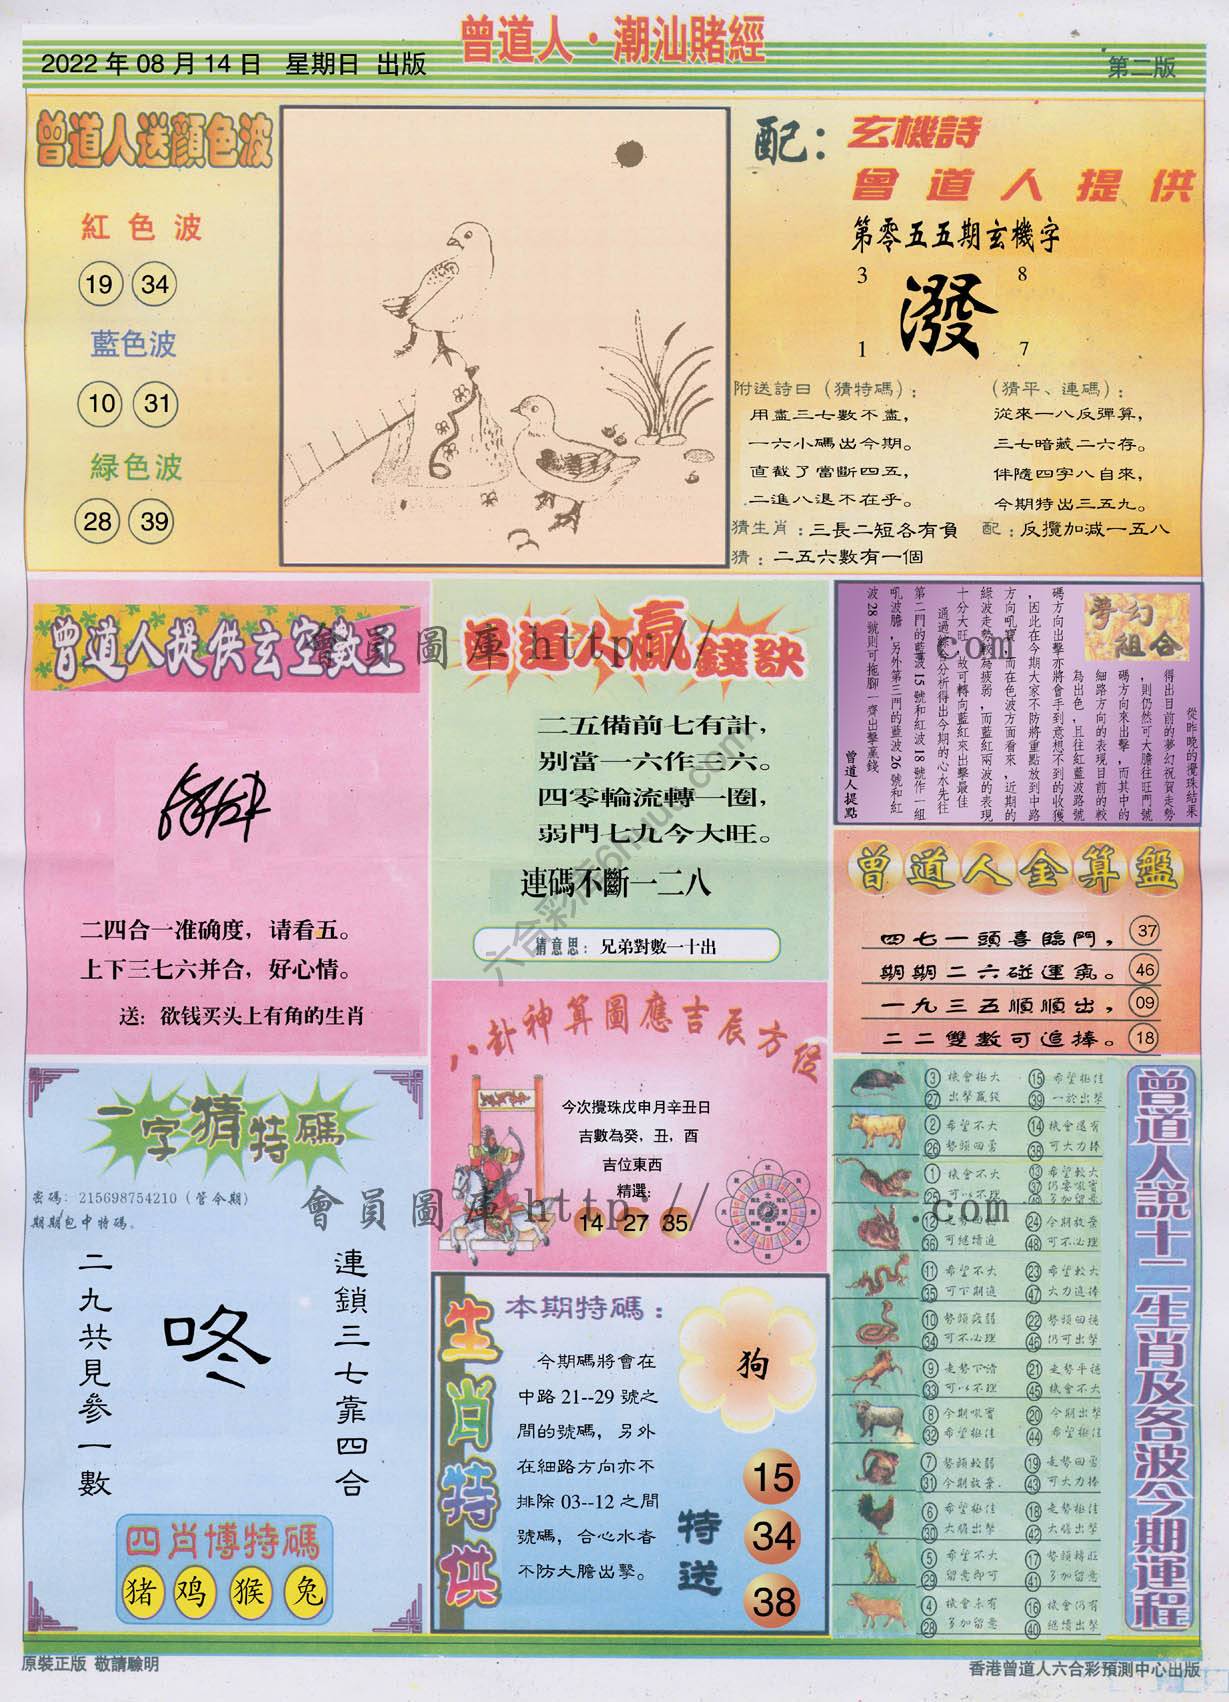 曾道人·潮汕賭經
2022 年 08 月 14 日 星期日 出版
第二版
曾道人送顏色波
紅色波
19 34
藍色波
10 31
緑色波
28 39
配：玄機詩
曾道人提供
第零五五期玄機字
3 8
潑
1 7
附送詩曰（猜特碼）：
用盡三七數不盡，
一六小碼出今期。
直截了當斷四五，
二進八退不在乎。
（猜平、連碼）：
從來一八反彈算，
三七暗藏二六存。
伴隨四字八自來，
今期特出三五九。
猜生肖：三長二短各有負
配：反攬加減一五八
猜：二五六數有一個
曾道人提供玄空數王
二四合一准确度，请看五。
上下三七六并合，好心情。
送：欲钱买头上有角的生肖
曾道人贏錢訣
二五備前七有計，
别當一六作三六。
四零輪流轉一圈，
弱門七九今大旺。
連碼不斷一二八
猜意思：兄弟對數一十出
夢幻
組合
從昨晚的攪珠結果
得出目前的夢幻祝賀走勢
，則仍然可大膽往旺門號
碼方向來出擊，而其中的
細路方向的表現目前的較
為出色，且往紅藍波路號
碼方向出擊亦將會手到意想不到的收獲
，因此在今期大家不防將重點放到中路
方向吼寶，而在色波方面看來，近期的
綠波走勢較為疲弱，而藍紅兩波的表現
十分大旺，故可轉向藍紅來出擊最佳
通過綜合分析得出今期的心水先往
第二門的藍波 15 號和紅波 18 號作一組
吼波膽，另外第三門的藍波 26 號和紅
波 28 號則可拖腳一齊出擊贏錢
曾道人提點
曾道人金算盤
四七一頭喜臨門， 37
期期二六碰運氣。 46
一九三五順順出， 09
二二雙數可追捧。 18
八卦神算圖應吉辰方位
今次攪珠戊申月辛丑日
吉數為癸，丑，酉
吉位東西
精選：
14 27 35
一字猜特碼
密碼：215698754210（管今期）
期期包中特碼。
二九共見參一數
咚
連鎖三七靠四合
四肖博特碼
猪 鸡 猴 兔
生肖特供
本期特碼：
今期碼將會在
中路 21--29 號之
間的號碼，另外
在細路方向亦不
排除 03--12 之間
號碼，合心水者
不防大膽出擊。
狗
特送
15
34
38
曾道人説十二生肖及各波今期運程
3 機會極大 15 希望極佳
27 出擊贏錢 39 一於出擊
2 希望不大 14 機會還有
26 勢頭回勇 38 可大力捧
1 機會不大 13 希望較大
25 可以不理 37 仍要吼實
多加留意
12 24 今期放棄
36 可繼續進 48 可不必理
11 希望不大 23 希望較大
35 可下期進 47 大力進捧
10 勢頭疲弱 22 勢頭回穩
34 可不必理 46 仍可出擊
9 走勢下滑 21 走勢平穩
33 可以不理 45 機會不大
8 今期吼實 20 今期出擊
32 希望極佳 44 希望極佳
7 勢頭較弱 19 走勢回勇
31 今期放棄. 43 可大力捧
6 希望極佳 18 走勢極佳
30 大膽出擊 42 大膽出擊
5 希望不大 17 勢頭轉旺
29 留意即可 41 多加留意
4 機會未有 16 機會仍有
28 多加留意 40 繼續出擊
原裝正版 敬請驗明
香港曾道人六合彩預測中心出版
會員圖庫 http://
.com
會員圖庫 http://
.com